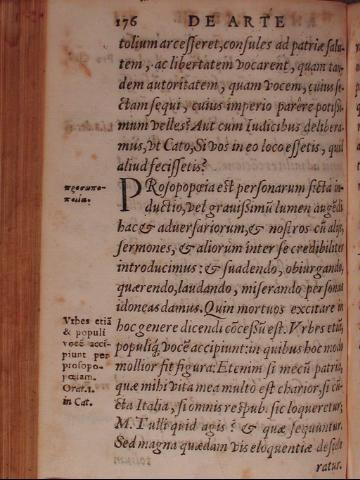 176 DE ARTE
tolium arcesseret, consules ad patriæ salu-
tem, ac libertatem vocarent, quam tan-
dem autoritatem, quam vocem, cuius se-
ctam sequi, cuius imperio parêre potiss-
mum velles? Aut cum Iudicibus delibera-
mus, vt Cato, Si vos in eo loco essetis, quid
aliud fecissetis?
PRosopopœia est personarum ficta in-
ductio, vel grauissimũ lumen augẽdi
hac & aduersariorum, & nostros cũ alijs
sermones, & aliorum inter se credibiliter
introducimus: & suadendo, obiurgando,
quærendo, laudando, miserando personas
idoneas damus. Quin mortuos excitare in
hoc genere dicendi cõcessũ est. Vrbes etiã,
populiq́; vocẽ accipiunt: in quibus hoc modo
mollior fit figura: Etenim si mecũ patria,
quæ mihi vita mea multò est charior, si cũ-
cta Italia, si omnis respub. sic loqueretur;
M. Tulli quid agis? & quæ sequuntur.
Sed magna quædam vis eloquentiæ deside-
ratur.
προσωπο-
ποιΐα.
Vrbes etiã
& populi
vocẽ acci-
piunt per
prosopo-
pœiam.
Orat. 1.
in Cat.